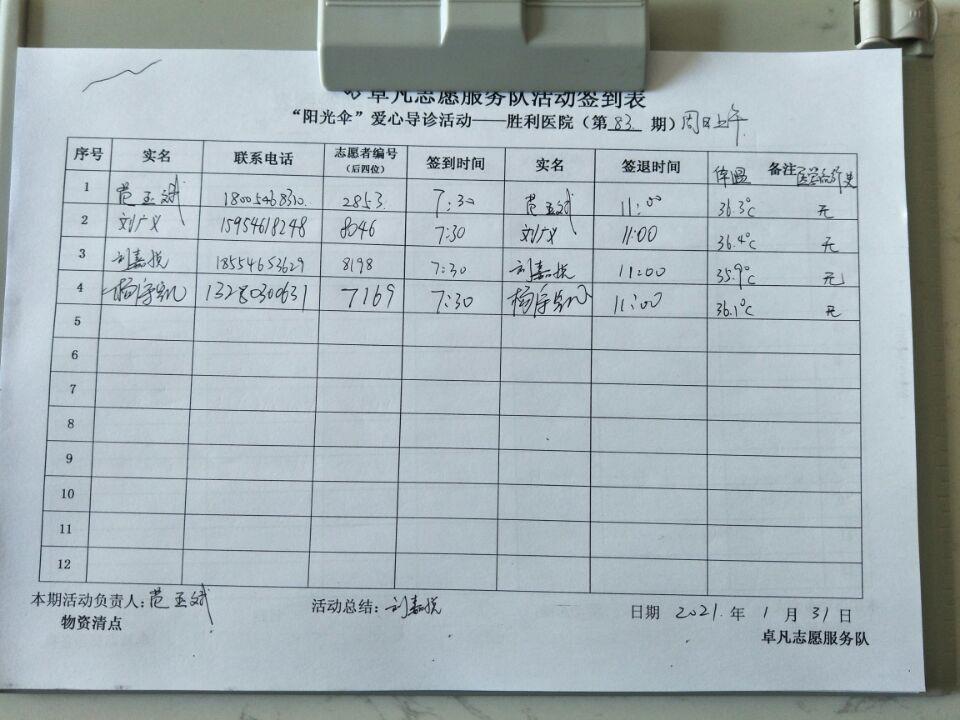 卓凡志愿服务队活动签到表
“阳光伞”爱心导诊活动——胜利医院（第 83 期）周日上午
序号 实名 联系电话 志愿者编号（后四位） 签到时间 实名 签退时间 体温 备注
1 范玉斌 18005468310 2853 7:30 范玉斌 11:00 36.3℃ 无
2 刘广义 15954618248 8046 7:30 刘广义 11:00 36.4℃ 无
3 刘嘉悦 18554653629 8198 7:30 刘嘉悦 11:00 35.9℃ 无
4 13280300631 7169 7:30 11:00 36.1℃ 无
5
6
7
8
9
10
11
12
本期活动负责人：范玉斌 活动总结：刘嘉悦 日期 2021.年 1 月 31 日
物资清点 卓凡志愿服务队